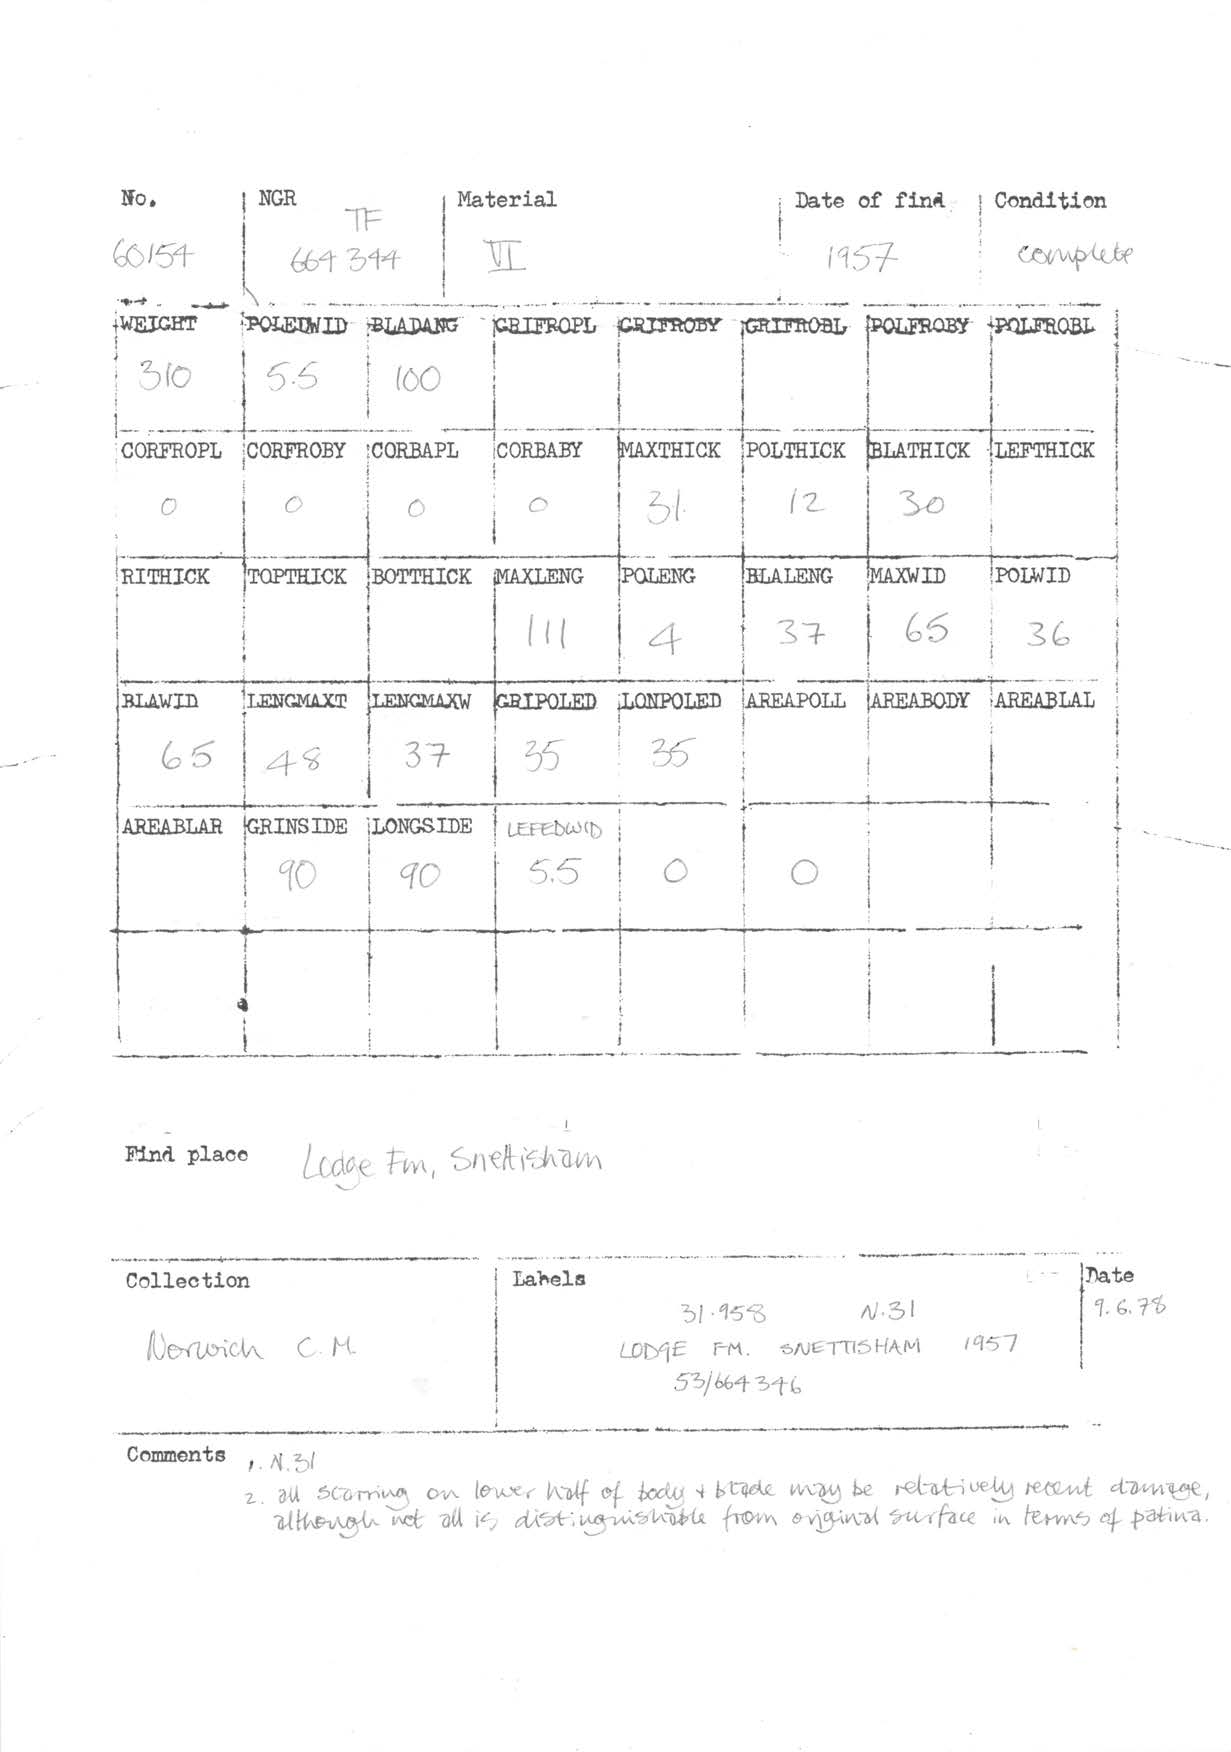 No. NGR Material Date of find Condition
TF
60154 664 344 VI 1957 complete
WEIGHT POLEDWID BLADANG GRIFROPL GRIFROBY GRIFROBL POLFROBY POLFROBL
310 5.5 100
CORFROPL CORFROBY CORBAPL CORBABY MAXTHICK POLTHICK BLATHICK LEFTHICK
0 0 0 0 31 12 30
RITHICK TOPTHICK BOTTHICK MAXLENG POLENG BLALENG MAXWID POLWID
111 4 37 65 36
BLAWID LENGMAXT LENGMAXW GRIPOLED LONPOLED AREAPOLL AREABODY AREABLAL
65 48 37 35 35
AREABLAR GRINSIDE LONGSIDE LEFEDWID
90 90 5.5 0 0
Find place Lodge Fm, Snettisham
Collection Labels Date
31.958 N.31 9.6.78
Norwich C.M. LODGE FM. SNETTISHAM 1957
53/664346
Comments 1. N.31
2. all scarring on lower half of body + blade may be relatively recent damage,
although not all is distinguishable from original surface in terms of patina.